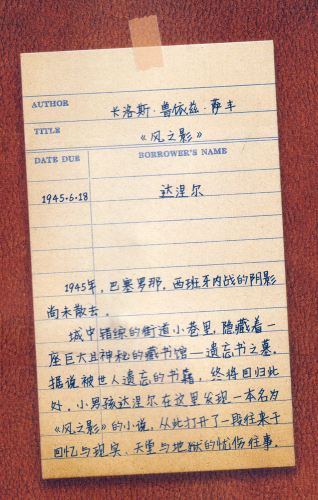 AUTHOR 卡洛斯·鲁依兹·萨丰
TITLE 《风之影》
DATE DUE BORROWER'S NAME
1945·6·18 达涅尔
1945年，巴塞罗那，西班牙内战的阴影
尚未散去。
城中错综的街道小巷里，隐藏着一
座巨大且神秘的藏书馆—遗忘书之墓。
据说被世人遗忘的书籍，终将回归此
处。小男孩达涅尔在这里发现一本名为
《风之影》的小说，从此打开了一段往来于
回忆与现实、天堂与地狱的忧伤往事。